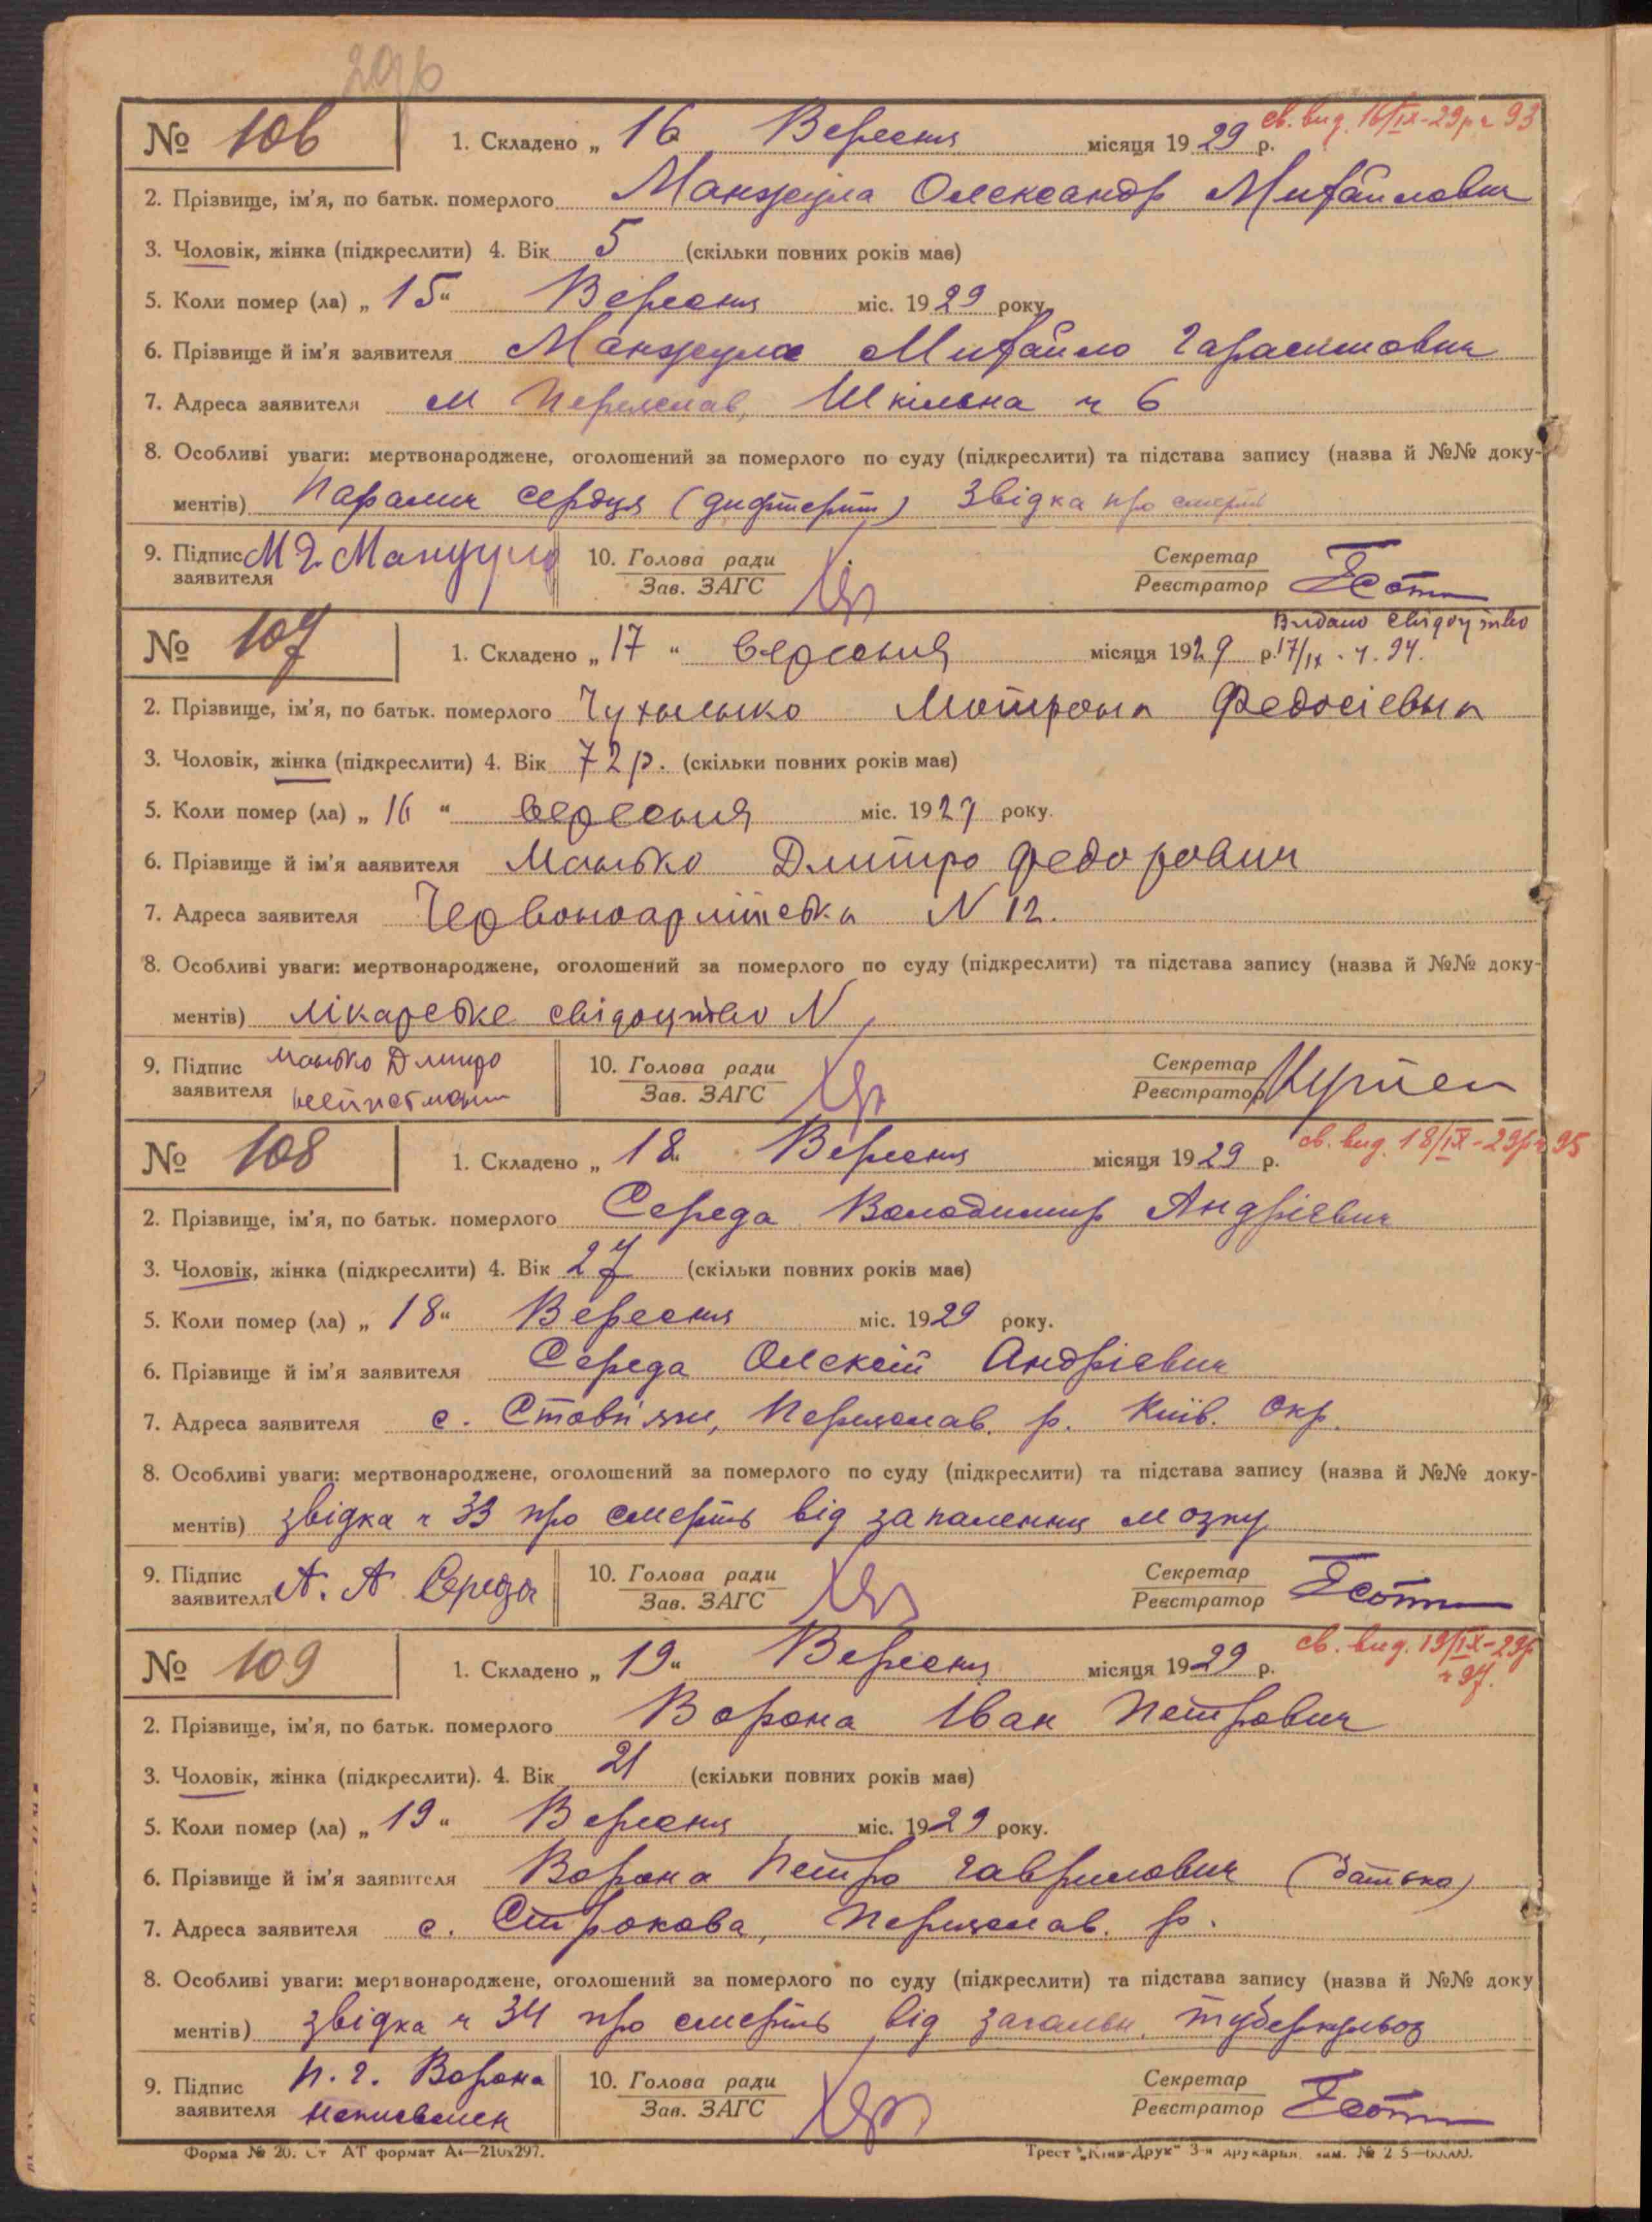 296
№ 106 1. Складено „ 16 Вересня місяця 1929 р. св. вид. 16/IX-29р ч 93
2. Прізвище, ім'я, по батьк. померлого Манжула Олександр Михайлович
3. Чоловік, жінка (підкреслити) 4. Вік 5 (скільки повних років має)
5. Коли помер (ла) „ 15 “ Вересня міс. 1929 року
6. Прізвище й ім'я заявителя Манжула Михайло Гарасимович
7. Адреса заявителя м Переяслав, Шкільна ч 6
8. Особливі уваги: мертвонароджене, оголошений за померлого по суду (підкреслити) та підстава запису (назва й №№ доку-
ментів) Параліч сердця (дифтерит) Звідка про смерть
9. Підпис заявителя М Г. Манжула 10. Голова ради Зав. ЗАГС Секретар Реєстратор
Видано свідоцтво
№ 107 1. Складено „ 17 “ вересня місяця 1929 р. 17/IX. ч. 94.
2. Прізвище, ім'я, по батьк. померлого Чухлыко Мотрона Федосіевна
3. Чоловік, жінка (підкреслити) 4. Вік 72 р. (скільки повних років має)
5. Коли помер (ла) „ 16 “ вересня міс. 1929 року.
6. Прізвище й ім'я заявителя Манько Дмитро Федорович
7. Адреса заявителя Червоноармійська N 12.
8. Особливі уваги: мертвонароджене, оголошений за померлого по суду (підкреслити) та підстава запису (назва й №№ доку-
ментів) лікарське свідоцтво N
9. Підпис заявителя Манько Дмитро 10. Голова ради Зав. ЗАГС Секретар Реєстратор
№ 108 1. Складено „ 18 Вересня місяця 1929 р. св. вид. 18/IX-29р ч 95
2. Прізвище, ім'я, по батьк. померлого Середа Володимир Андрієвич
3. Чоловік, жінка (підкреслити) 4. Вік 27 (скільки повних років має)
5. Коли помер (ла) „ 18 “ Вересня міс. 1929 року.
6. Прізвище й ім'я заявителя Середа Олексій Андрієвич
7. Адреса заявителя с. Стовп'яги, Переяслав. р. Київ. Окр.
8. Особливі уваги: мертвонароджене, оголошений за померлого по суду (підкреслити) та підстава запису (назва й №№ доку-
ментів) звідка ч 33 про смерть від запалення мозку
9. Підпис заявителя А. А Середа 10. Голова ради Зав. ЗАГС Секретар Реєстратор
№ 109 1. Складено „ 19 “ Вересня місяця 1929 р. св. вид. 19/IX-29р ч 97.
2. Прізвище, ім'я, по батьк. померлого Ворона Іван Петрович
3. Чоловік, жінка (підкреслити). 4. Вік 21 (скільки повних років має)
5. Коли помер (ла) „ 19 “ Вересня міс. 1929 року.
6. Прізвище й ім'я заявителя Ворона Петро Гаврилович (батько)
7. Адреса заявителя с. Строкова, Переяслав. р.
8. Особливі уваги: мертвонароджене, оголошений за померлого по суду (підкреслити) та підстава запису (назва й №№ доку
ментів) звідка ч 34 про смерть від загальн. туберкульоз
9. Підпис заявителя П. Г. Ворона 10. Голова ради Зав. ЗАГС Секретар Реєстратор
Форма № 20. Ст АТ формат А4—210x297. Трест „Київ-Друк“ 3-я друкарня